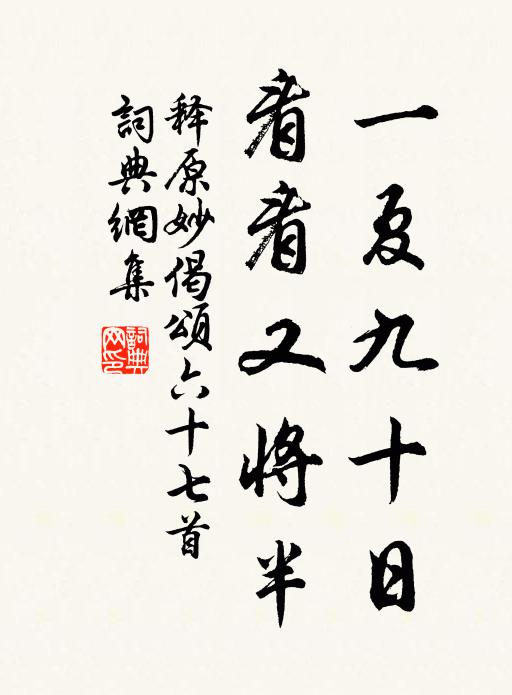 一夏九十日
看看又将半
释原妙偈頌六十七首
詞典網集
詞典网印